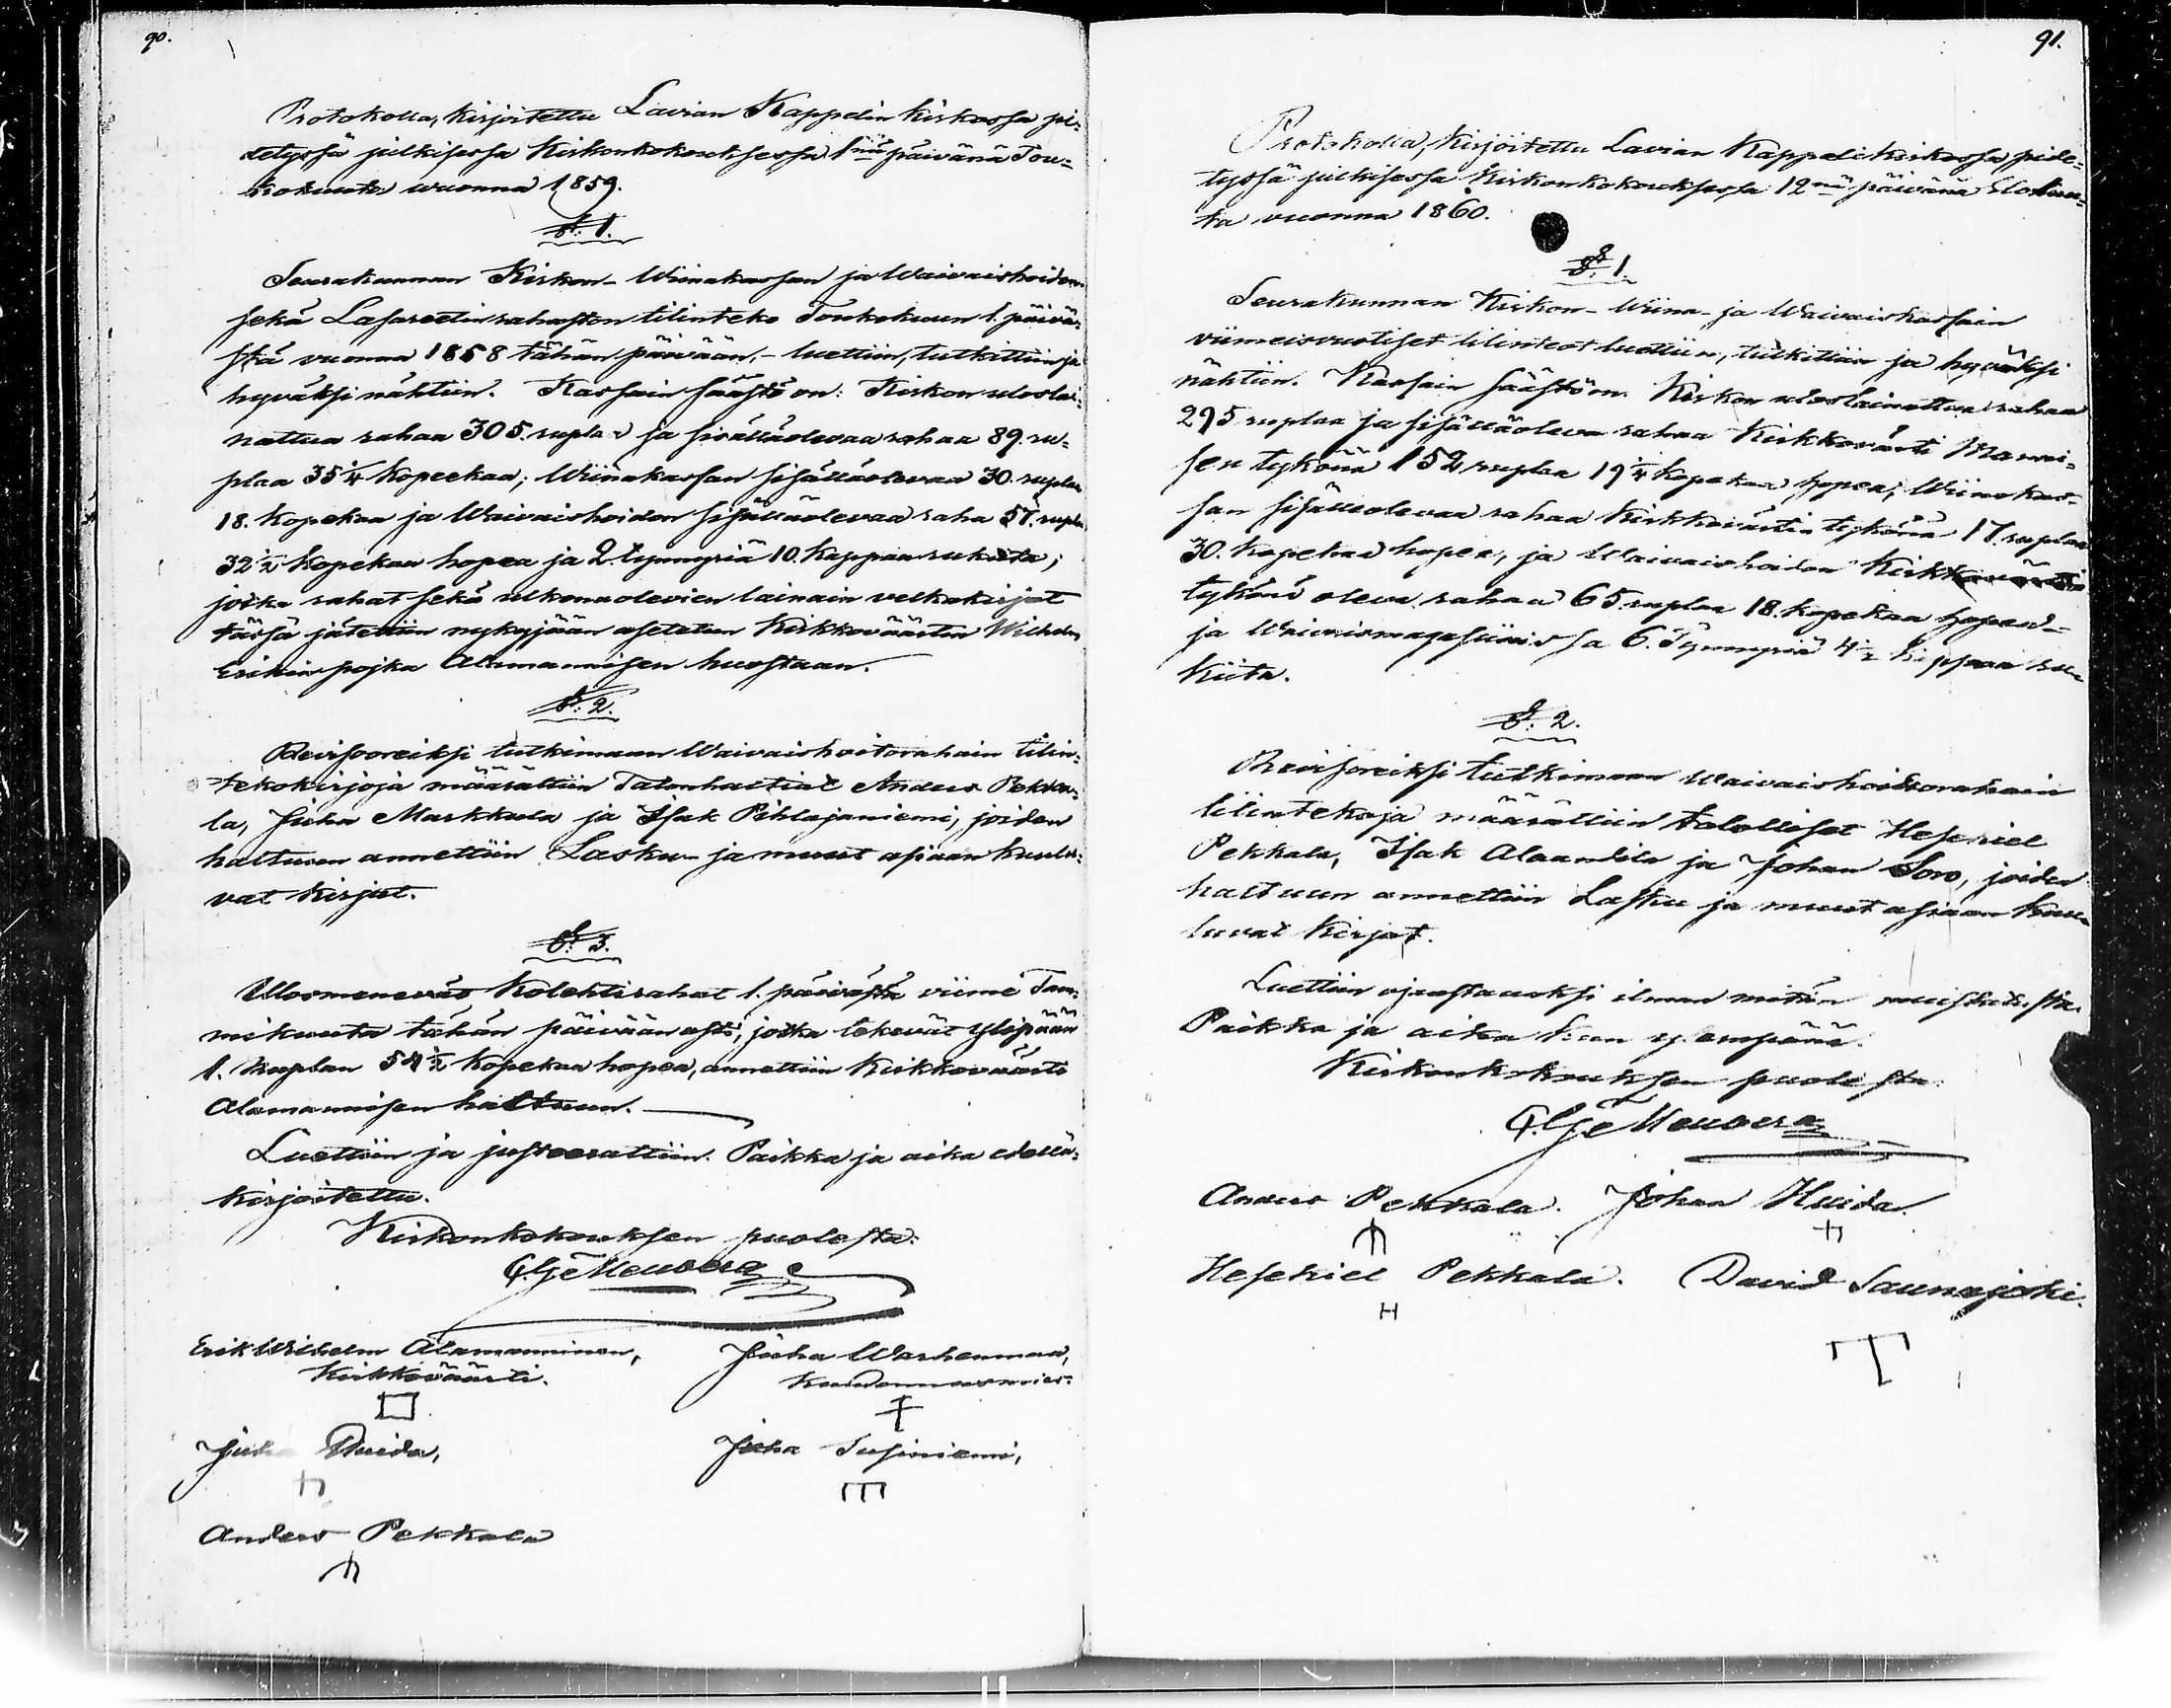 90.
Protokolla, kirjoitettu Lavian Kappelin kirkossa pi-
detyssä julkisessa Kirkonkokouksessa 1nä päivänä Tou-
kokuuta vuonna 1859.
§. 1.
Seurakunnan Kirkon- Wiinakassan ja Waivaishoidon
sekä Lasareetin rahasten tilinteko Toukokuun 1. päivä-
stä vuonna 1858 tähän päivään,- luettiin, tutkittiin ja
hyväksi nähtiin. Kassain säästö on: Kirkon uloslai-
nattua rahaa 305. ruplaa ja sisälläolevaa rahaa 89. ru-
plaa 35 1/4 kopeekaa; Wiinakassan sisälläolevaa 30. ruplaa
18. kopekaa ja Waivaishoidon sisälläolevaa raha 57. rupla
32 1/2 kopekaa hopea ja 2. tynnyriä 10. kappaa rukiita;
jotka rahat sekä ulkonaolevien lainain velkakirjat
tässä jätettiin nykyjään asetetun Kirkkoväärtin Wilhelm
Erikinpojka Alamannisen huostaan.
§. 2.
Revisooreiksi tutkimaan Waivaishoitorahain tilin-
tekokirjoja määrättiin Talonhaltiat Anders Pekka-
la, Juha Markkula ja Isak Pihlajaniemi, joiden
haltuun annettiin Lasku- ja muut asiaan kuulu-
vat kirjat.
§. 3.
Ulosmenevät Kolehtirahat 1. päivästä viime Tam-
mikuuta tähän päivään asti, jotka tekevät ylöspään
1. Ruplan 54 1/2 kopekaa hopea, annettiin Kirkkoväärti
Alamannisen haltuun.
Luettiin ja justeerattiin. Paikka ja aika edellä-
kirjoitettu.
Kirkonkokouksen puolesta:
Erik Wilhelm Alamanninen,
Kirkkoväärti.
Juha Warhenmaa,
Kuudennusmies.
Juha Huida,
Juha Susiniemi,
Anders Pekkala
91.
Protokolla, Kirjoitettu Lavian Kappelikirkossa pide-
tyssä julkisessa Kirkonkokouksessa 12nä päivänä
ta vuonna 1860.
§. 1.
Seurakunnan Kirkon- Wiina- ja Waivaiskassain
viimeisvuotiset tilinteot luettiin, tutkittiin ja hyväksi
nähtiin. Kassain säästö on. Kirkon uloslainattua rahaa
295 ruplaa ja sisälläoleva rahaa Kirkkovärti Manni-
sen tykönä 152 ruplaa 19 1/4 kopekaa hopea; Wiinakas-
san sisälläolevaa rahaa Kirkkovärtin tykönä 17. ruplaa
30. kopekaa hopea, ja Waivaishoidon Kirkkovärtin
tykönä oleva rahaa 65. ruplaa 18. kopekaa hopeaa
ja Waivaismagasiinissa 6. Tynnyriä 4 1/2 kappaa ru-
kiita.
§. 2.
Revisoreiksi tutkimaan waivaishoitorahain
tilintekoja määrättiin talolliset Hesekiel
Pekkala, Isak Alaantila ja Johan Soro, joiden
haltuun annettiin Lasku ja muut asiaan kuu-
luvat kirjat.
Luettiin ojennukseksi ilman mitään muistutusta.
Paikka ja aika kuin ylempänä.
Kirkonkokouksen puolesta
Anders Pekkala. Johan Huida.
Hesekiel Pekkala. David Saunajoki.